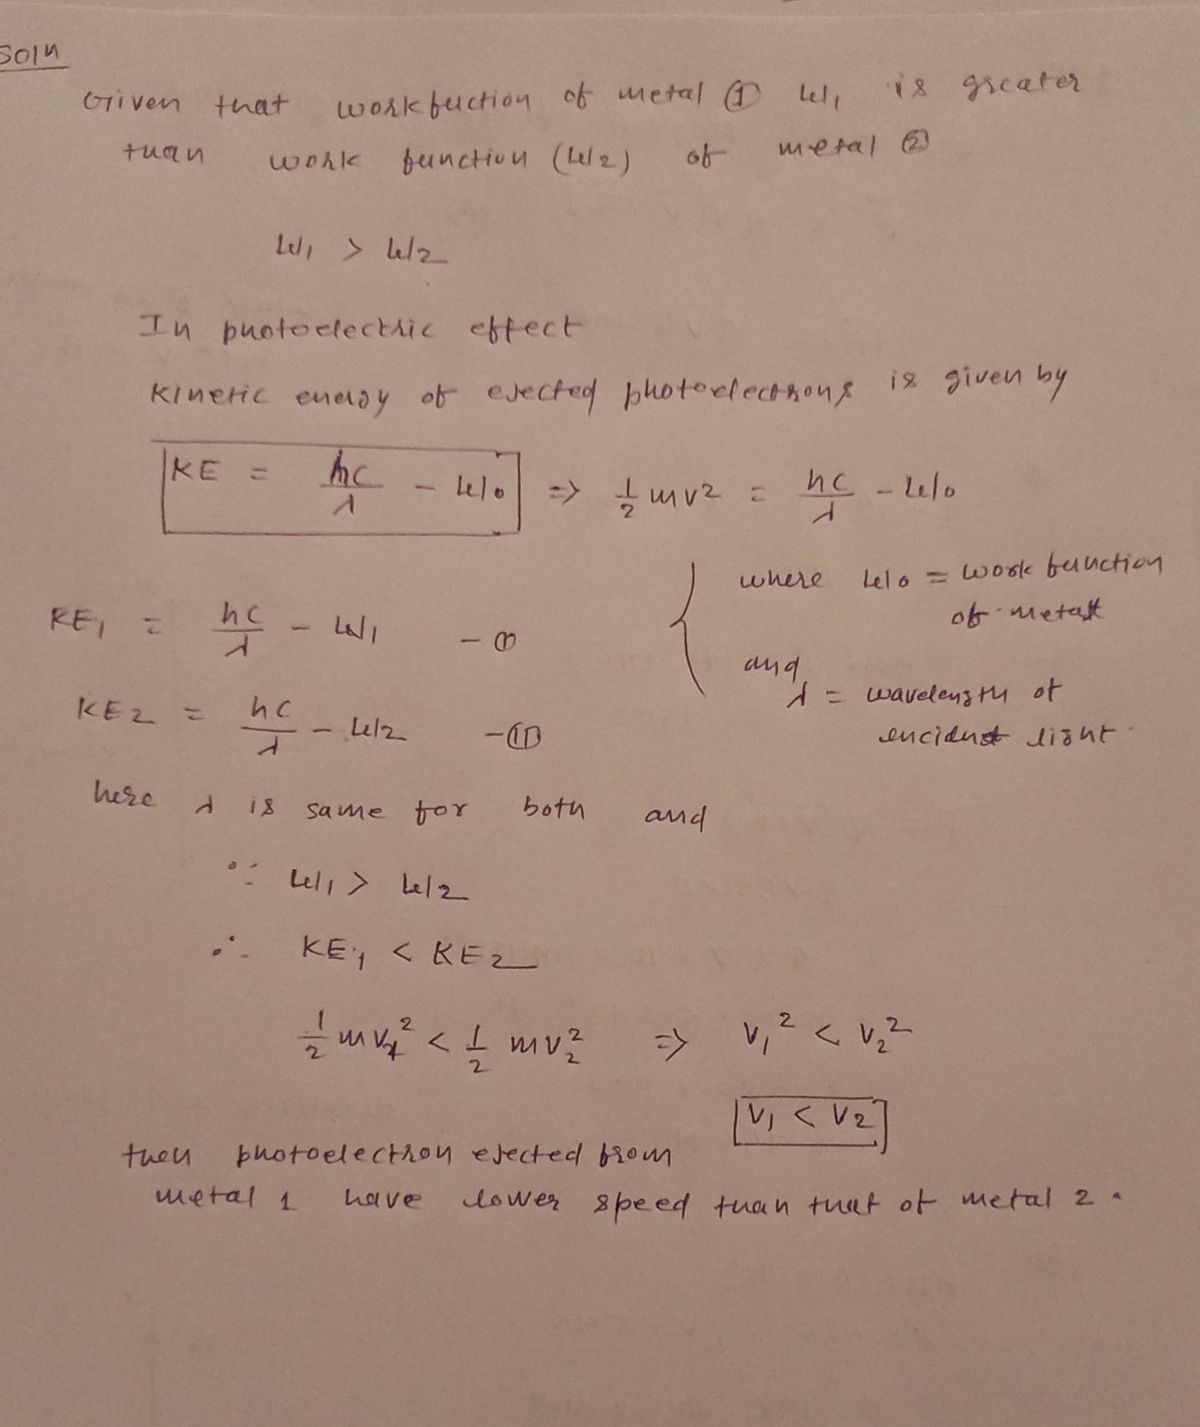 Soln
Given that workfuction of metal ① W₁ is greater
than work function (W2) of metal ②
W₁ > W2
In photoelectric effect
Kinetic energy of ejected photoelectrons is given by
KE = hc/λ - W0 => 1/2 mv² = hc/λ - W0
where W0 = work function
of metal
KE₁ = hc/λ - W1 - ①
and
λ = wavelength of
encident light
KE2 = hc/λ - W2 - ⑪
here λ is same for both and
∵ W1 > W2
∴ KE₁ < KE2
1/2 mv₁² < 1/2 mv₂² => V₁² < V₂²
V₁ < V2
then photoelectron ejected from
metal 1 have lower speed than that of metal 2.